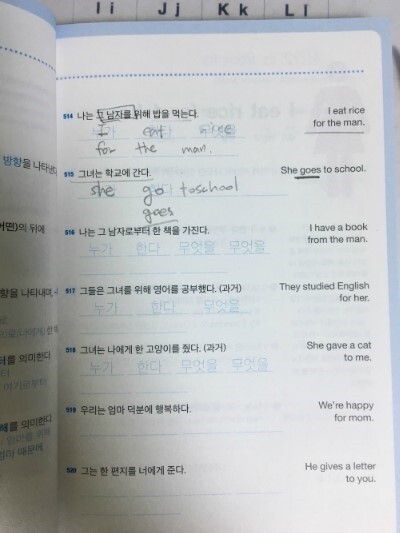 Ii Jj Kk Ll
514 나는 그 남자를 위해 밥을 먹는다.
I eat rice
for the man.
누가 한다 무엇을
I eat rice
for the man.
515 그녀는 학교에 간다.
She goes to school.
she go toschool
goes
516 나는 그 남자로부터 한 책을 가진다.
I have a book
from the man.
누가 한다 무엇을 무엇을
517 그들은 그녀를 위해 영어를 공부했다. (과거)
They studied English
for her.
누가 한다 무엇을
518 그녀는 나에게 한 고양이를 줬다. (과거)
She gave a cat
to me.
누가 한다 무엇을 무엇을
519 우리는 엄마 덕분에 행복하다.
We're happy
for mom.
520 그는 한 편지를 너에게 준다.
He gives a letter
to you.
방향을 나타
의 뒤에
향을 나타내며,
를 의미한다
를 의미한다
엄마 때문에